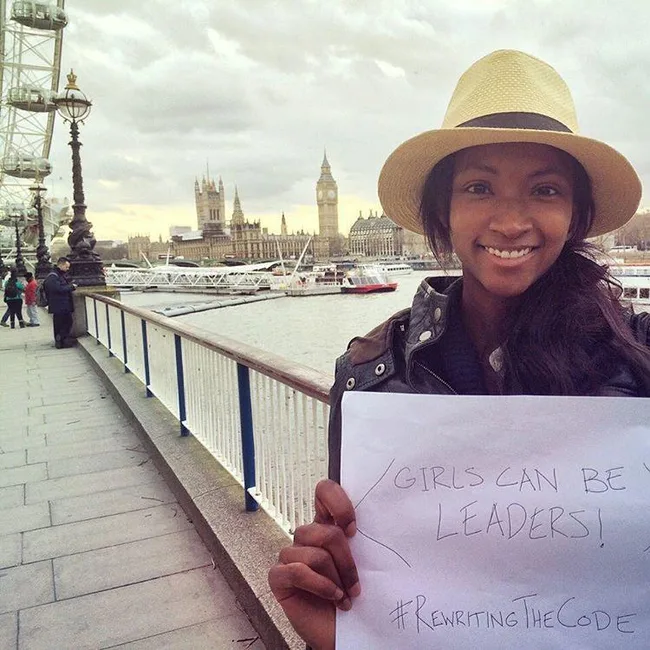 GIRLS CAN BE
LEADERS!
#REWRITINGTHECODE